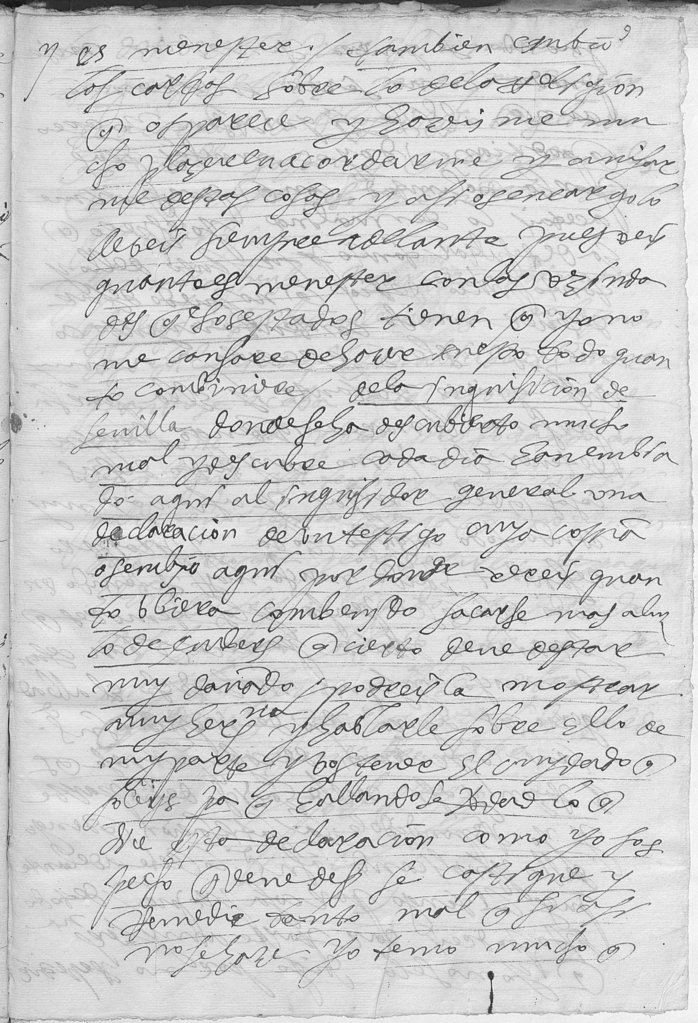 y es menester / tambien embio
los cargos sobre lo dela religion
q os parece y hazeis me mu
cho plazer en acordarme y avisar
me destas cosas y assi os encargo lo
hagais siempre adelante pues veis
quanto es menester con las
q essos estados tienen q yo no
me cansare de hazer en esto todo quan
to conbiniere / dela inquisicion de
sevilla donde se ha descubierto mucho
mal y descubre cada dia han embia
do aqui al inquisidor general una
declaracion de un testigo cuya copia
os embio aqui por donde vereis quan
to ubiera combenido sacarse mas
lo de q cierto deve de estar
muy dañado / podreis la mostrar
a my herna y hablarle sobre ello de
my parte y vos tener el cuydado q
soleis pa q hallandose verdad lo q
dize esta declaracion como yo sos
pecho q deve de ser se castigue y
Remedie tanto mal q si assi
no se haze yo temo mucho q